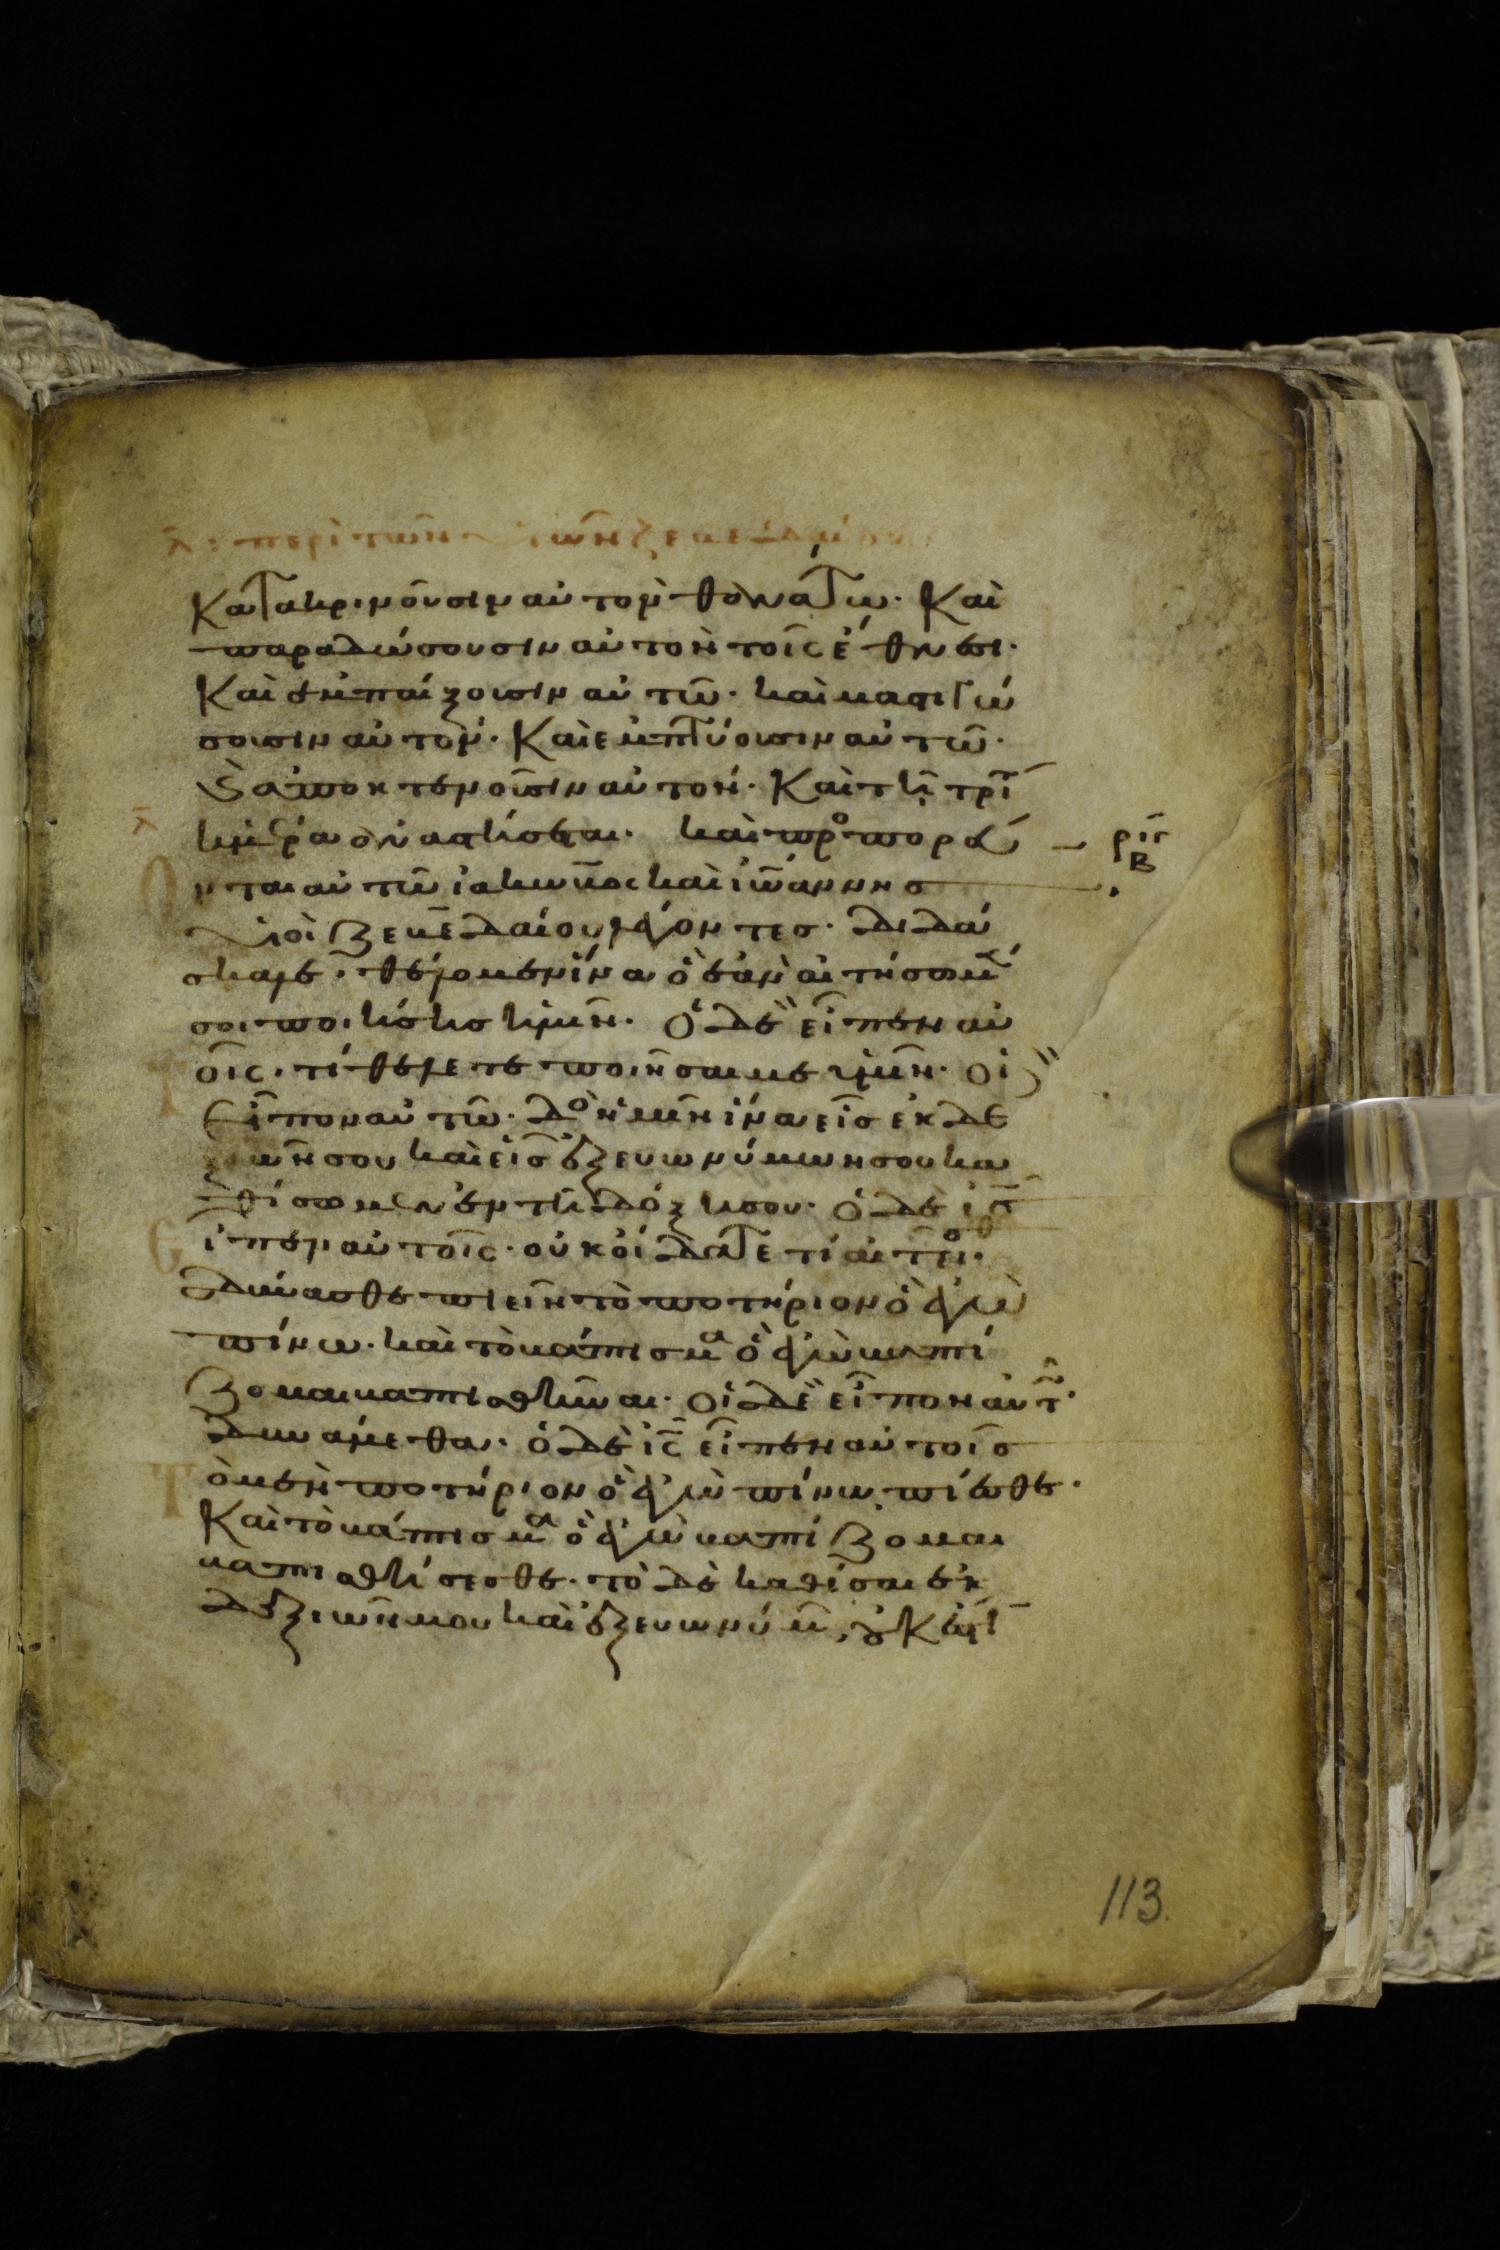 λ: περὶ τῶν υἱῶν ζεβεδαίου
κατακρινοῦσιν αὐτὸν θανάτω. Καὶ
παραδώσουσιν αὐτὸν τοῖς ἔθνεσι.
Καὶ ἐμπαίζουσιν αὐτῶ. καὶ μαστιγώ
σουσιν αὐτόν. Καὶ ἐμπτύουσιν αὐτῶ.
ϗ ἀποκτενοῦσιν αὐτόν. Καὶ τῆ τρί
ἡμέρα ἀναστήσεται. καὶ προσπορεύ
ονται αὐτῶ ἰάκωβος καὶ ἰωάννησ
υἱοὶ ζεβεδαίου λέγοντεσ. διδά
σκαλε. θέλομεν ἵνα ὃ ἐὰν αἰτήσωμ
σοι ποιήσησ ἡμῖν. ὁ δὲ εἶπεν αὐ
τοῖς. τί θέλετε ποιῆσαι με ὑμῖν. οἱ δὲ
εἶπον αὐτῶ. δὸσ ἡμῖν ἵνα εἷσ ἐκ δε
ξιῶν σου καὶ εἷσ ἐξ εὐωνύμων σου κα
θίσωμεν ἐν τῆ δόξη σου. ὁ δὲ ις
εἶπεν αὐτοῖς. οὐκ οἴδατε τί αἰτεῖσθε.
δύνασθε πιεῖν τὸ ποτήριον ὃ ἐγὼ
πίνω. καὶ τὸ βάπτισμα ὃ ἐγὼ βαπτί
ζομαι βαπτισθῆναι. οἱ δὲ εἶπον αὐτ.
δυνάμεθα. ὁ δὲ ις εἶπεν αὐτοῖσ
τὸ μὲν ποτήριον ὃ ἐγὼ πίνω, πίεσθε.
Καὶ τὸ βάπτισμα ὃ ἐγὼ βαπτίζομαι
βαπτισθήσεσθε. τὸ δὲ καθίσαι ἐκ
δεξιῶν μου καὶ ἐξ εὐωνύμ, οὐκ ἔστ
113.